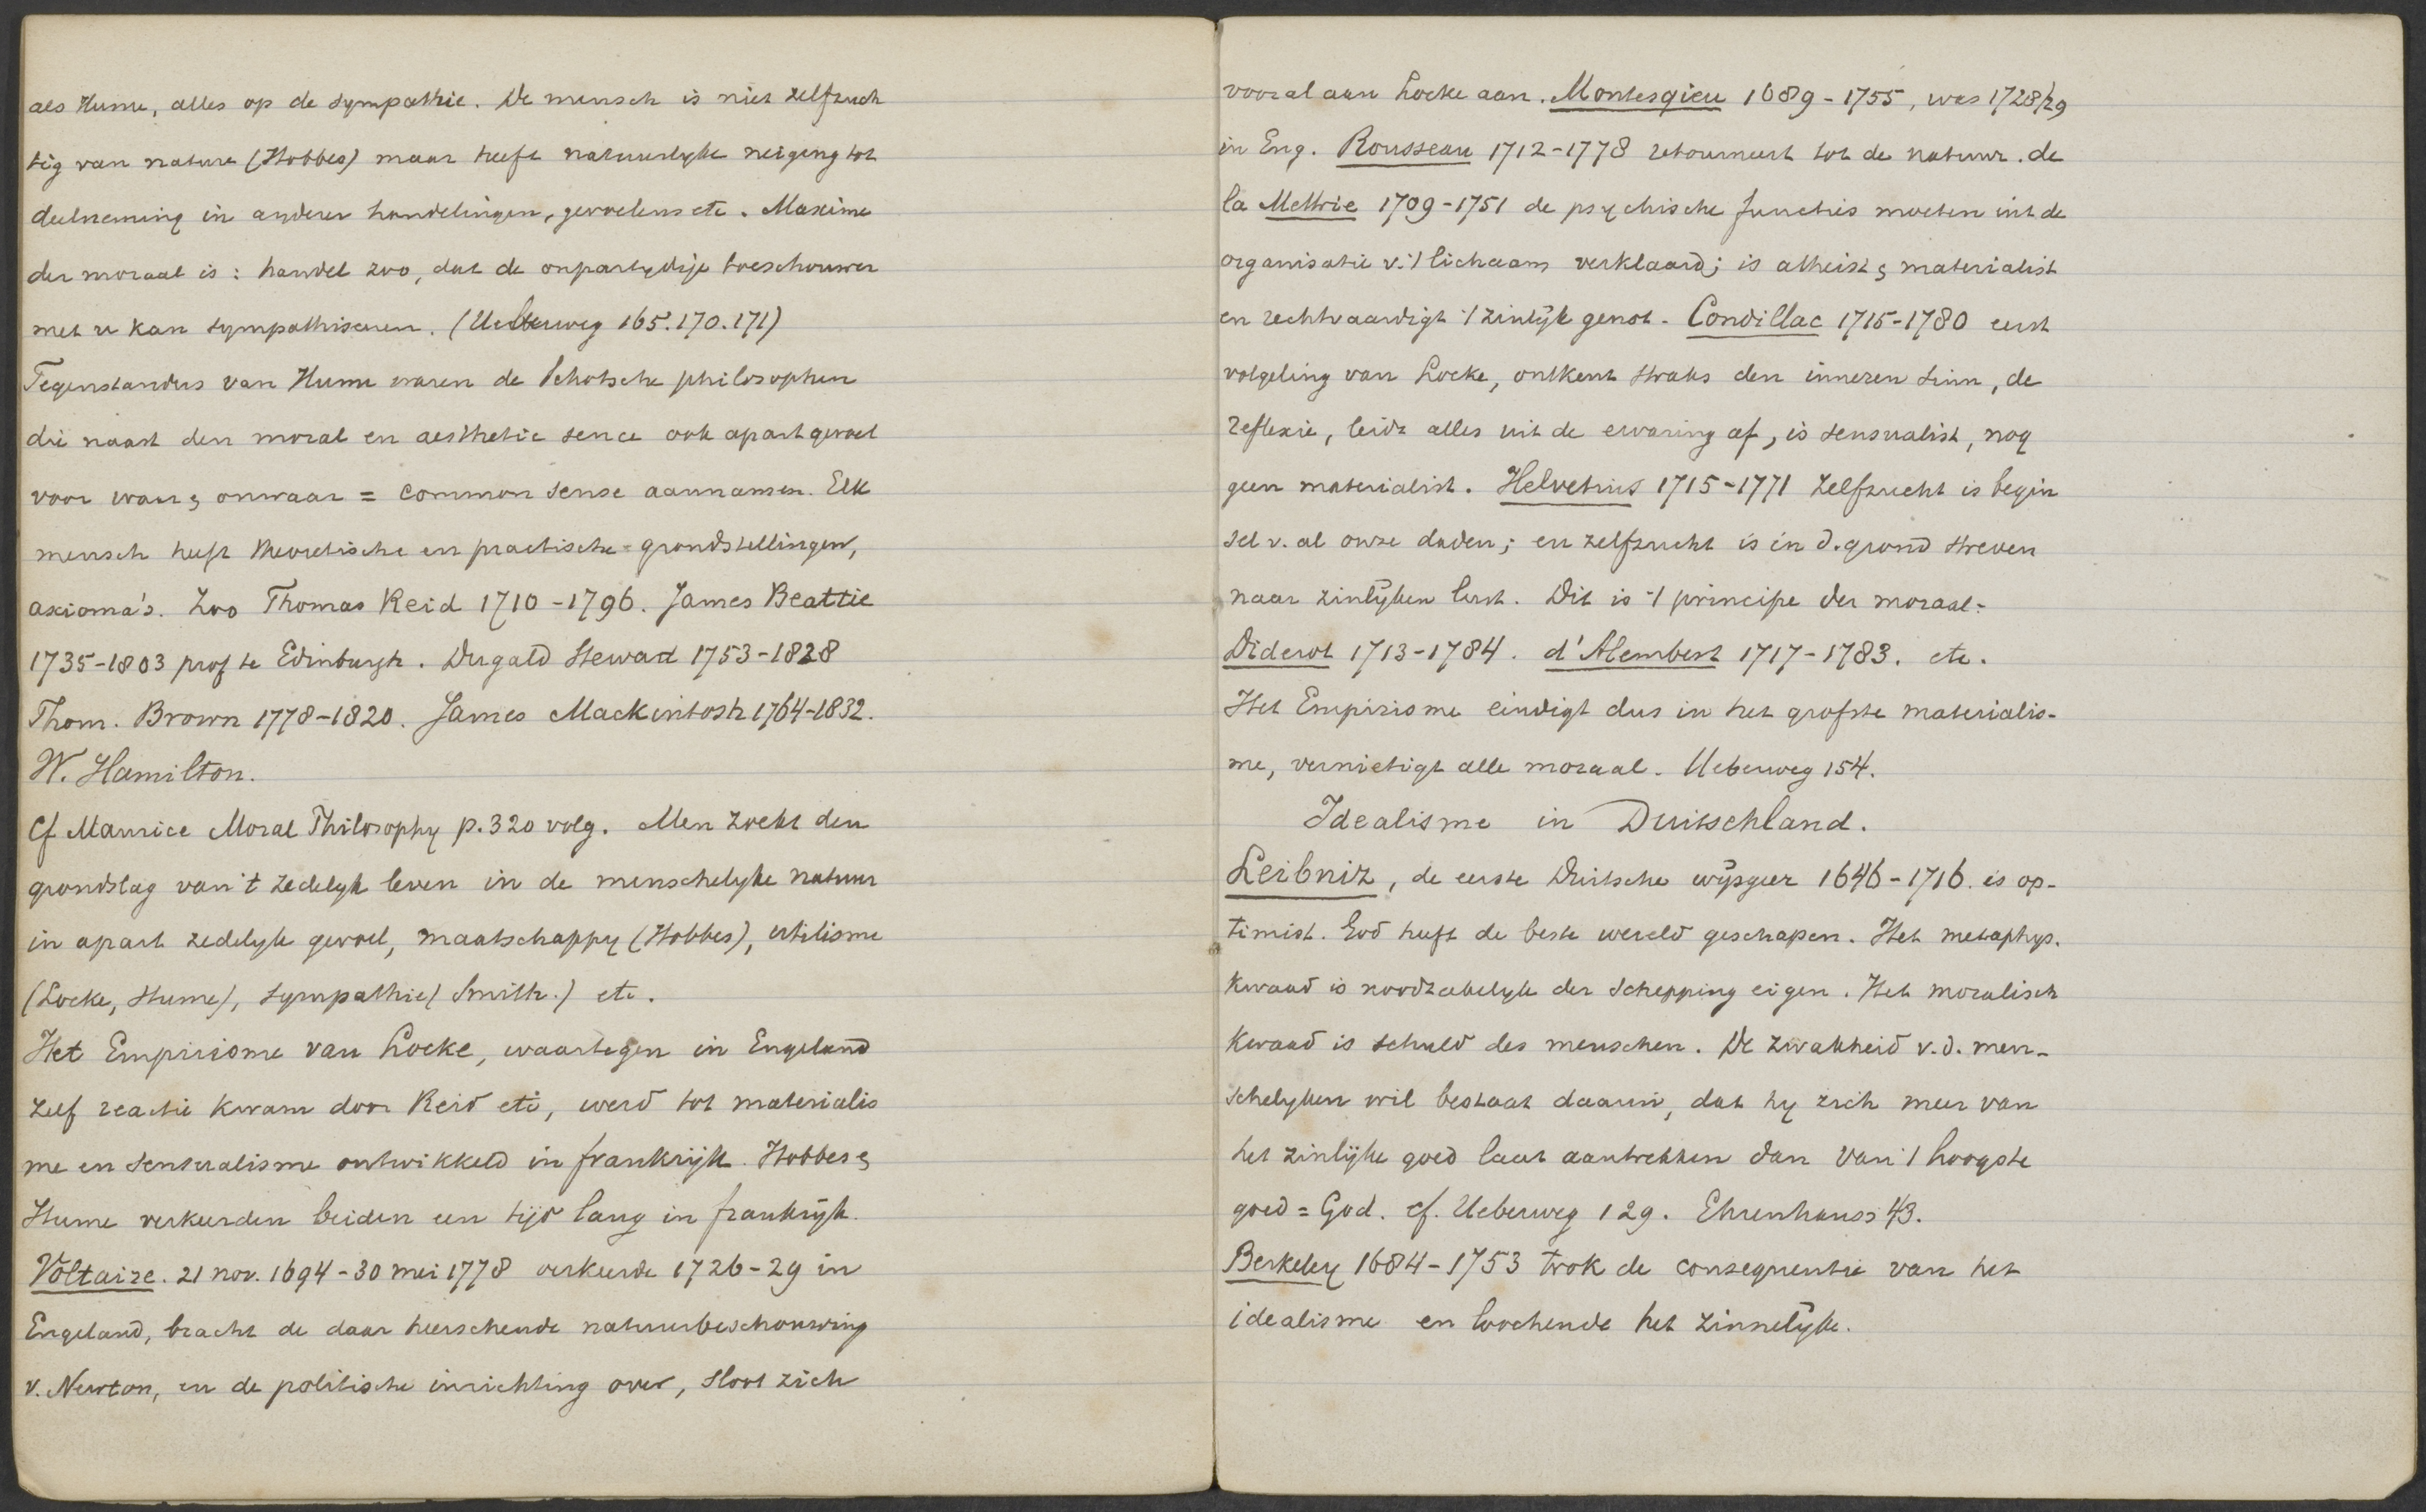 als Hume, alles op de sympathie. De mensch is niet zelfzuch
tig van nature (Hobbes) maar heeft natuurlyke neiging tot
deelneming in anderer handelingen, gevoelens etc. Maxime
der moraal is: handel zoo, dat de onpartydige toeschouwer
met u kan sympathiseren. (Ueberweg 165.170.171)
Tegenstanders van Hume waren de Schotsche philosophen
die naast den moral en aesthetic sence ook apart gevoel
voor waar & onwaar = common sense aannamen. Elk
mensch heeft theoretische en practische grondstellingen,
axioma's. Zoo Thomas Reid 1710-1796. James Beattie
1735-1803 prof te Edinburgh. Dugald Stewart 1753-1828
Thom. Brown 1778-1820. James Mackintosh 1764-1832.
W. Hamilton.
Cf Maurice Moral Philosophy p.320 volg. Men zoekt den
grondslag van 't zedelyk leven in de menschelyke natuur
in apart zedelyk gevoel, maatschappy (Hobbes), utilisme
(Locke, Hume), sympathie (Smith.) etc.
Het Empirisme van Locke, waartegen in Engeland
zelf reactie kwam door Reid etc, werd tot materialis
me en sensualisme ontwikkeld in frankrijk. Hobbes &
Hume verkeerden beiden een tijd lang in frankrijk.
Voltaire. 21 nov. 1694-30 mei 1778 verkeerde 1726-29 in
Engeland, bracht de daar heerschende natuurbeschouwing
v. Newton, en de politische inrichting over, sloot zich
vooral aan Locke aan. Montesqieu 1689-1755, was 1728/29
in Eng. Rousseau 1712-1778 retourneert tot de natuur. de
la Mettrie 1709-1751 de psychische functies moeten uit de
organisatie v. 't lichaam verklaard; is atheist & materialist
en rechtvaardigt 't zinlijk genot. Condillac 1715-1780 eerst
volgeling van Locke, ontkent straks den inneren sinn, de
reflexie, leidt alles uit de ervaring af, is sensualist, nog
geen materialist. Helvetius 1715-1771 zelfzucht is begin
sel v. al onze daden; en zelfzucht is in d. grond streven
naar zinlijken lust. Dit is 't principe der moraal.
Diderot 1713-1784. d'Alembert 1717-1783. etc.
Het Empirisme eindigt dus in het grofste materialis-
me, vernietigt alle moraal. Ueberweg 154.
Idealisme in Duitschland.
Leibniz, de eerste Duitsche wijsgeer 1646-1716. is op-
timist. God heeft de beste wereld geschapen. Het metaphys.
kwaad is noodzakelyk der schepping eigen. Het moralisch
kwaad is schuld des menschen. De zwakheid v.d. men-
schelyken wil bestaat daarin, dat hy zich meer van
het zinlijke goed laat aantrekken dan van 't hoogste
goed = God. cf. Ueberweg 129. Ehrenhauss 43.
Berkeley 1684-1753 trok de consequentie van het
idealisme en loochende het zinnelijke.